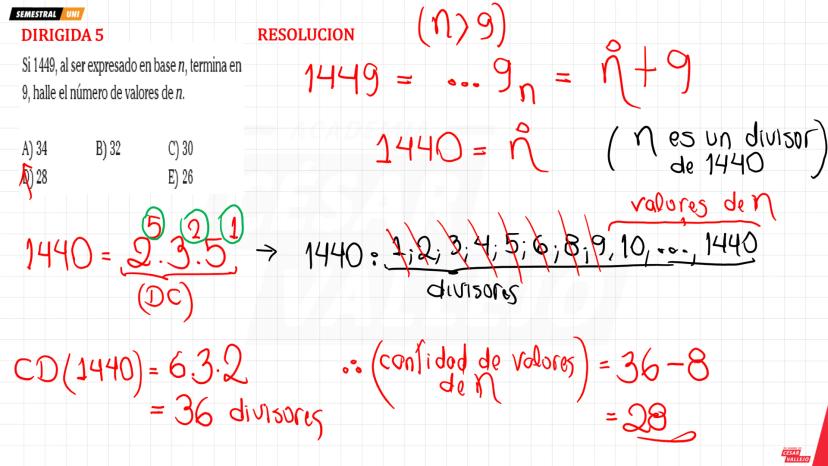 SEMESTRAL UNI
DIRIGIDA 5
Si 1449, al ser expresado en base n, termina en
9, halle el número de valores de n.
A) 34 B) 32 C) 30
D) 28 E) 26
RESOLUCION
(n > 9)
1449 = ...9ₙ = n̊ + 9
1440 = n̊
(n es un divisor
de 1440)
1440 = 2⁵.3².5¹
(DC)
→ 1440 : 1; 2; 3; 4; 5; 6; 8; 9, 10, ..., 1440
valores de n
divisores
CD(1440) = 6.3.2
= 36 divisores
∴ (cantidad de valores
de n) = 36 - 8
= 28
ACADEMIA
CÉSAR
VALLEJO